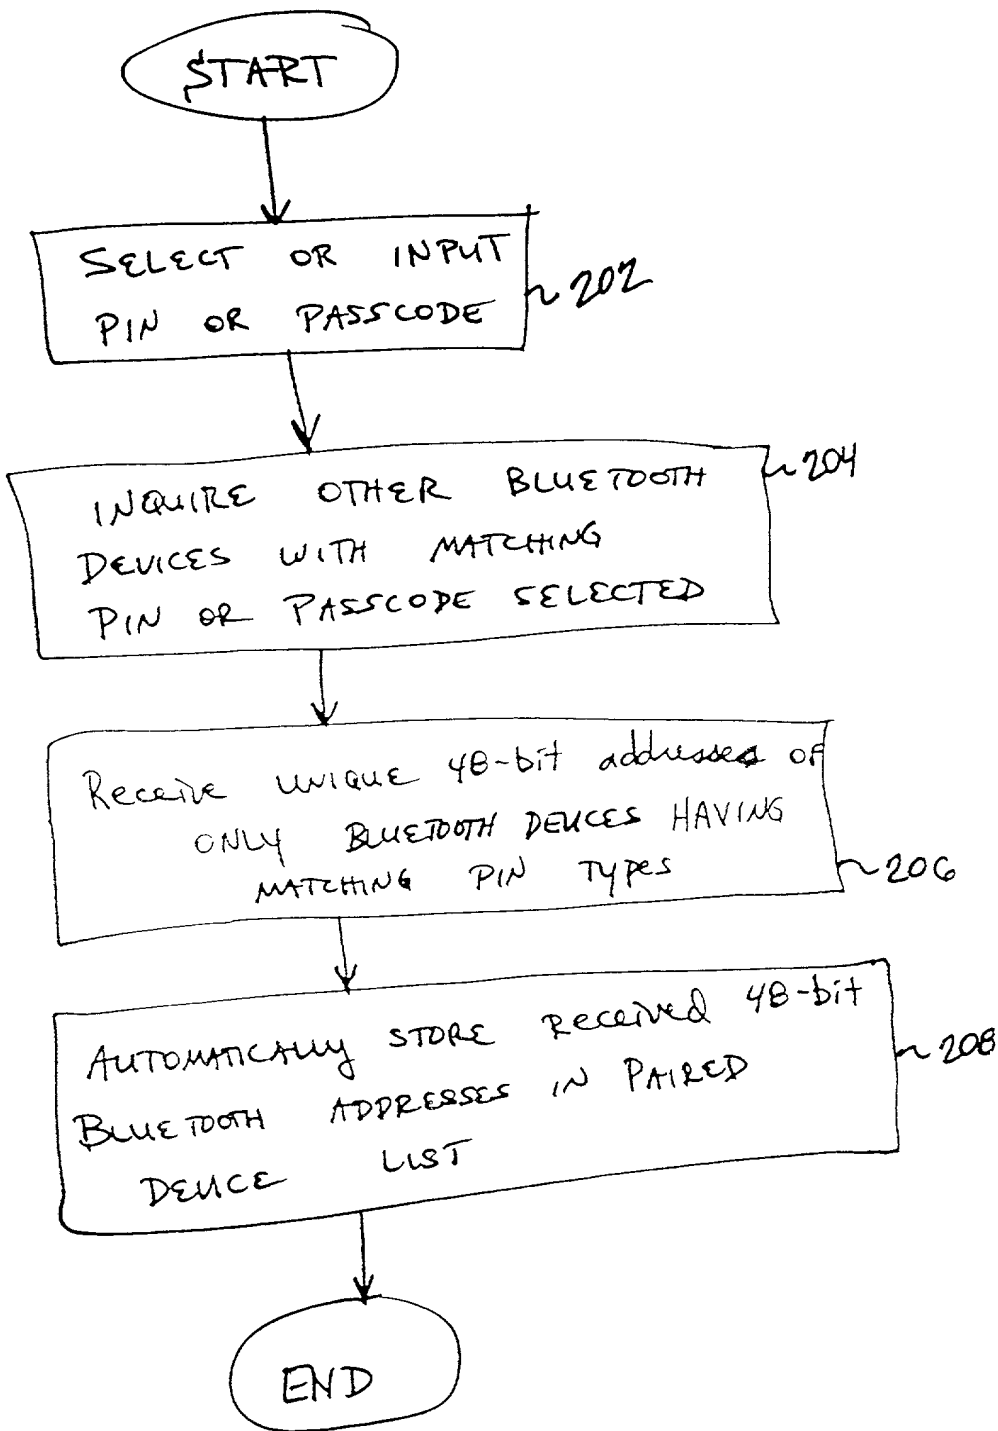 START
SELECT OR INPUT
PIN OR PASSCODE
202
INQUIRE OTHER BLUETOOTH
DEVICES WITH MATCHING
PIN OR PASSCODE SELECTED
204
Receive UNIQUE 48-bit addresses of
ONLY BLUETOOTH DEVICES HAVING
MATCHING PIN TYPES
206
AUTOMATICALLY STORE Received 48-bit
BLUETOOTH ADDRESSES IN PAIRED
DEVICE LIST
208
END